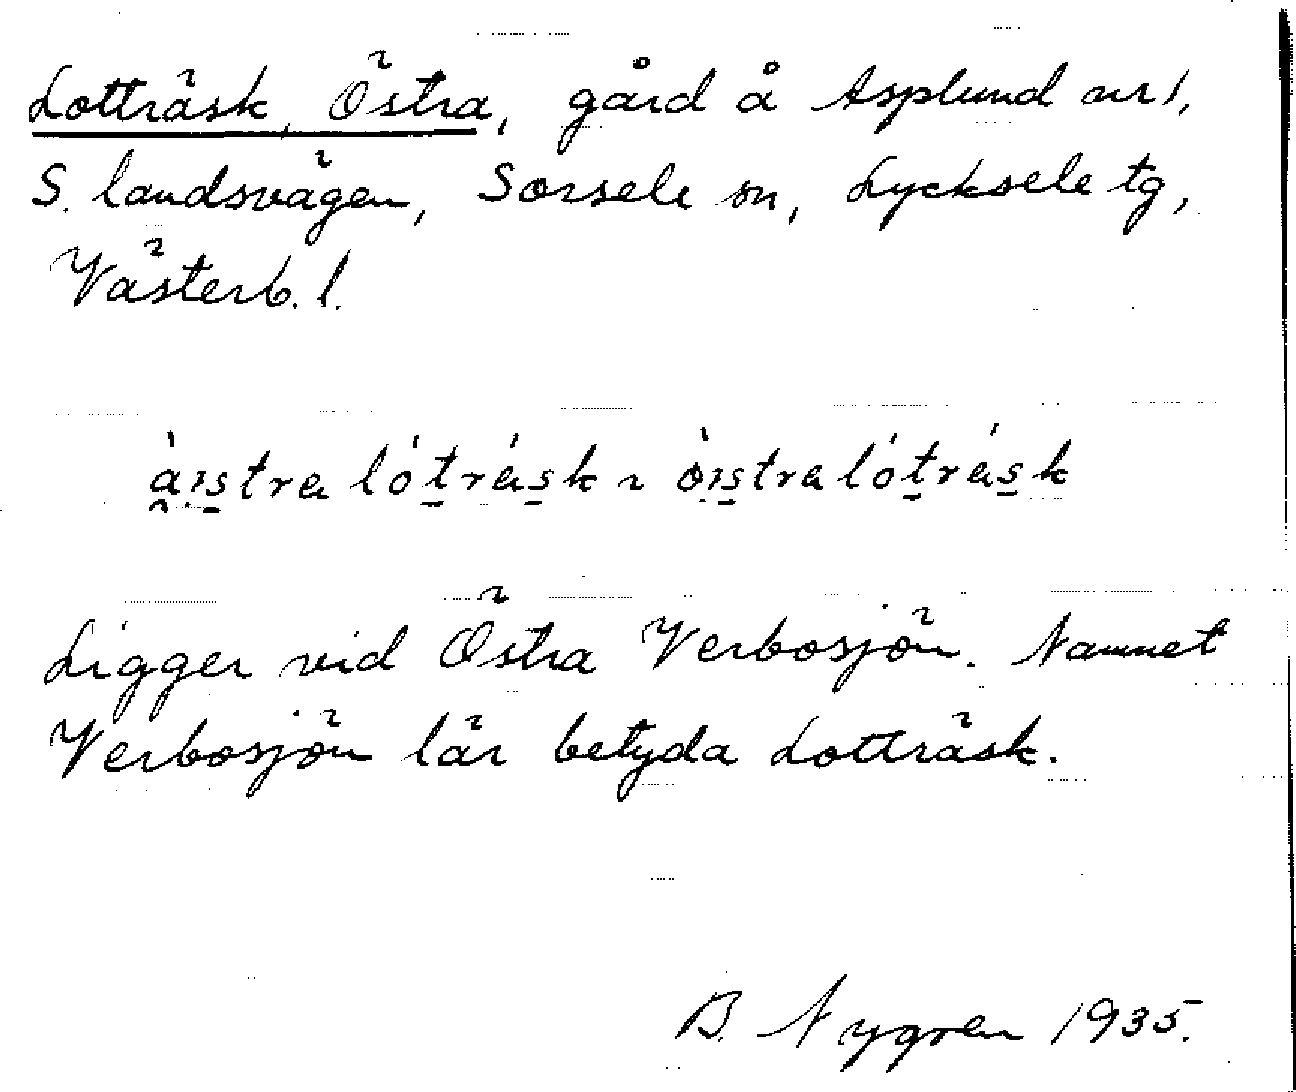 Lotträsk, Östra, gård å Asplund nr 1,
S. landsvägen, Sorsele sn, Lycksele tg,
Västerb. l.
àıstra lótrásk ~ òıstra lótrásk
Ligger vid Östra Verbosjön. Namnet
Verbosjön lär betyda Lotträsk.
B. Nygren 1935.